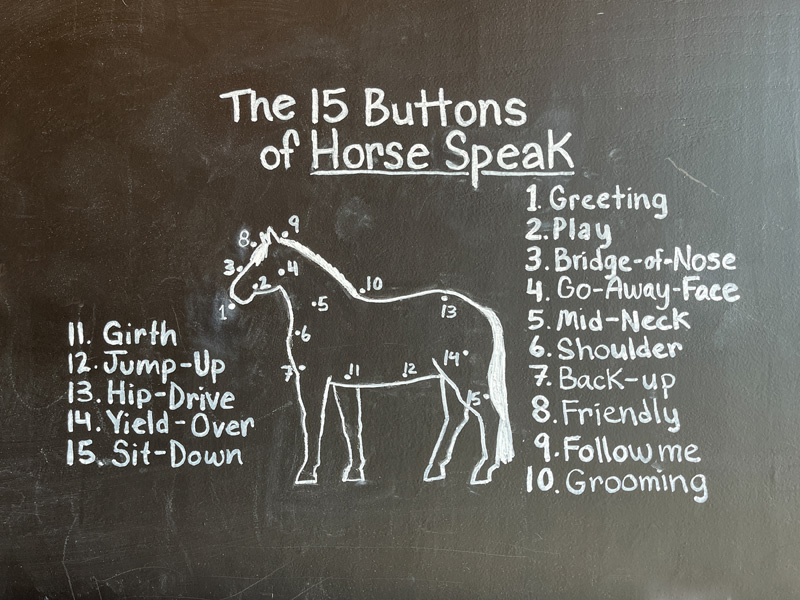 The 15 Buttons
of Horse Speak
1. Greeting
2. Play
3. Bridge-of-Nose
4. Go-Away-Face
5. Mid-Neck
6. Shoulder
7. Back-up
8. Friendly
9. Follow me
10. Grooming
11. Girth
12. Jump-Up
13. Hip-Drive
14. Yield-Over
15. Sit-Down
8
9
3
4
2
1
10
5
13
6
7
11
12
14
15